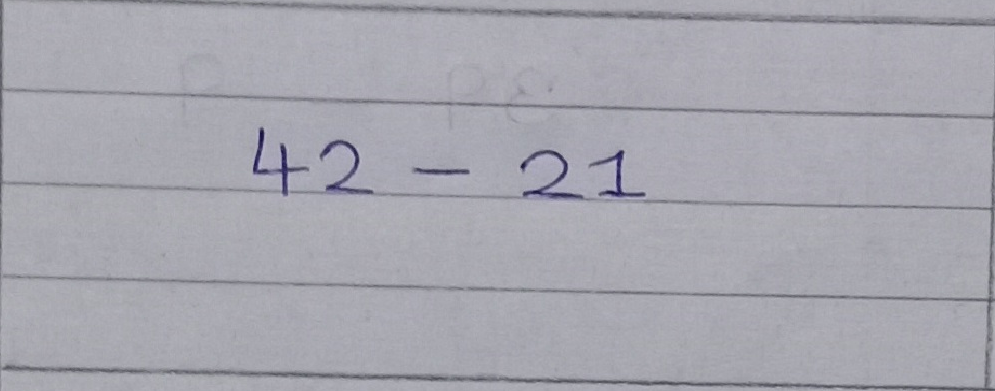 42 - 21